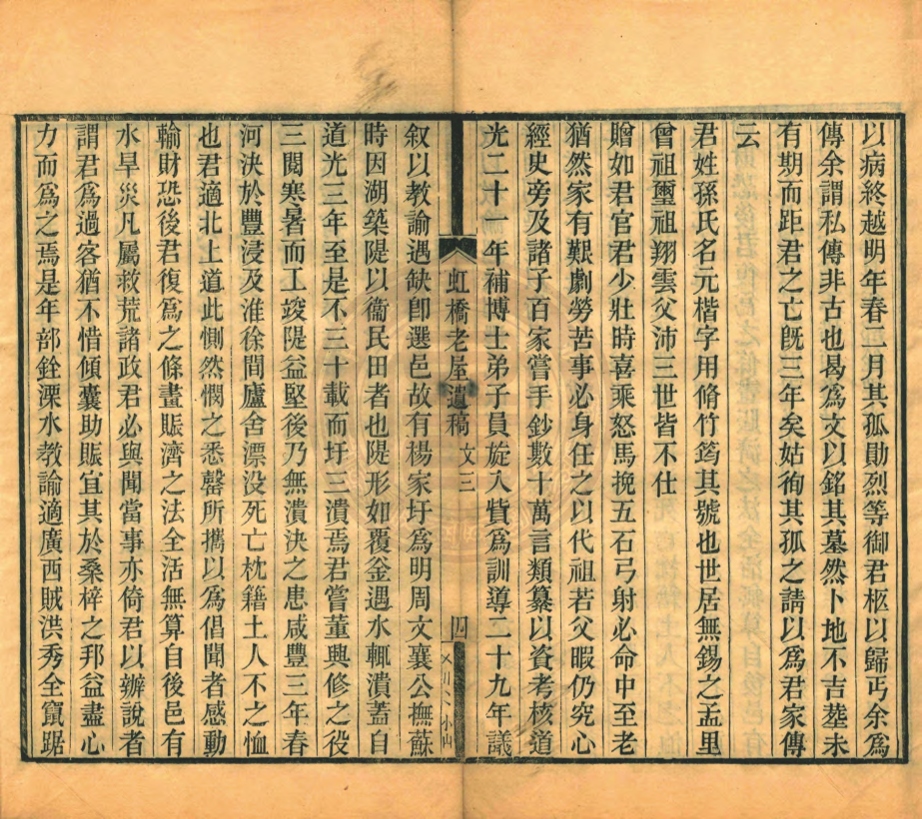 以病終越明年春二月其孤勛烈等御君柩以歸丐余爲
傳余謂私傳非古也曷爲文以銘其墓然卜地不吉塟未
有期而距君之亡旣三年矣姑徇其孤之請以爲君家傳
云
君姓孫氏名元楷字用脩竹筠其號也世居無錫之孟里
曾祖璽祖翔雲父沛三世皆不仕
贈如君官君少壯時喜乘怒馬挽五石弓射必命中至老
猶然家有艱劇勞苦事必身任之以代祖若父暇仍究心
經史旁及諸子百家嘗手鈔數十萬言類纂以資考核道
光二十一年補博士弟子員旋入貲爲訓導二十九年議
虹橋老屋遺稿 文三 四
叙以敎諭遇缺卽選邑故有楊家圩爲明周文襄公撫蘇
時因湖築隄以衞民田者也隄形如覆釜遇水輒潰蓋自
道光三年至是不三十載而圩三潰焉君嘗董興修之役
三閱寒暑而工竣隄益堅後乃無潰決之患咸豐三年春
河決於豐浸及淮徐間廬舍漂没死亡枕籍土人不之恤
也君適北上道此惻然憫之悉罄所攜以爲倡聞者感動
輸財恐後君復爲之條畫賑濟之法全活無算自後邑有
水旱災凡屬救荒諸政君必與聞當事亦倚君以辦說者
謂君爲過客猶不惜傾囊助賑宜其於桑梓之邦益盡心
力而爲之焉是年部銓溧水敎諭適廣西賊洪秀全竄踞